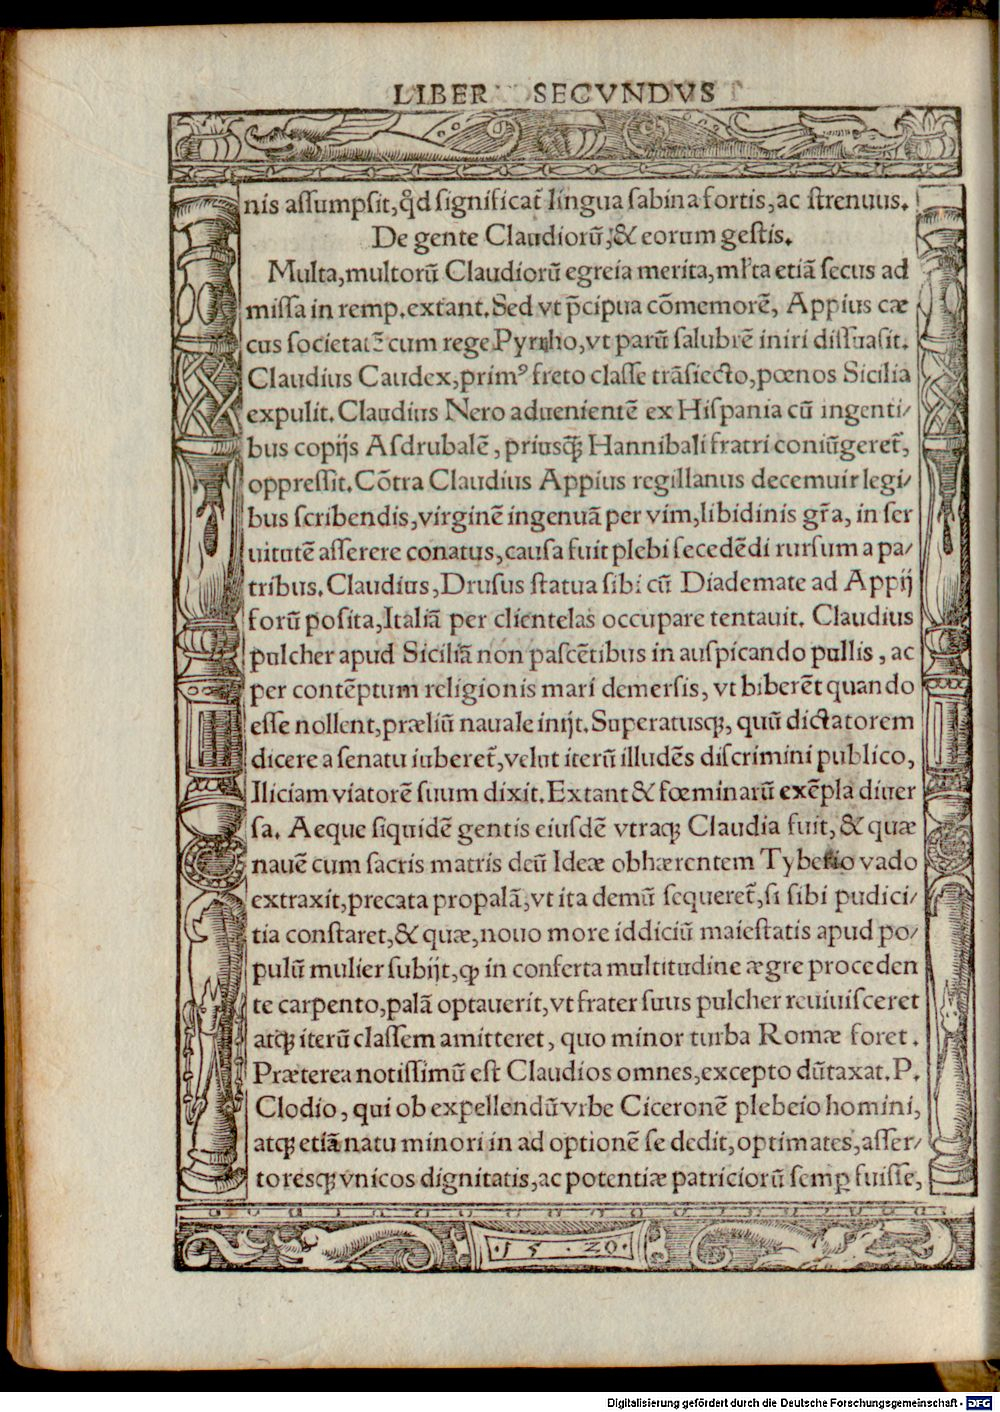 LIBER SECVNDVS
nis assumpsit, qd̃ significat̃ lingua sabina fortis, ac strenuus.
De gente Claudiorũ, & eorum gestis.
Multa, multorũ Claudiorũ egreia merita, ml̃ta etiã secus ad
missa in remp. extant. Sed vt p̃cipua cõmemorẽ, Appius cæ
cus societatẽ cum rege Pyrrho, vt parũ salubrẽ iniri dissuasit.
Claudius Caudex, primꝰ freto classe trãsiecto, pœnos Sicilia
expulit. Claudius Nero aduenientẽ ex Hispania cũ ingenti/
bus copijs Asdrubalẽ, priusꝗ̃ Hannibali fratri coniũgeret̃,
oppressit. Cõtra Claudius Appius regillanus decemuir legi/
bus scribendis, virginẽ ingenuã per vim, libidinis gr̃a, in ser
uitutẽ asserere conatus, causa fuit plebi secedẽdi rursum a pa/
tribus. Claudius, Drusus statua sibi cũ Diademate ad Appij
forũ posita, Italiã per clientelas occupare tentauit. Claudius
pulcher apud Siciliã non pascẽtibus in auspicando pullis, ac
per contẽptum religionis mari demersis, vt biberẽt quando
esse nollent, præliũ nauale inijt. Superatusꝗ, quũ dictatorem
dicere a senatu iuberet̃, velut iterũ illudẽs discrimini publico,
Iliciam viatorẽ suum dixit. Extant & fœminarũ exẽpla diuer
sa. Aeque siquidẽ gentis eiusdẽ vtraꝗ Claudia fuit, & quæ
nauẽ cum sacris matris deũ Ideæ obhærentem Tyberio vado
extraxit, precata propalã, vt ita demũ sequeret̃, si sibi pudici/
tia constaret, & quæ, nouo more iddiciũ maiestatis apud po/
pulũ mulier subijt, ꝙ in conferta multitudine ægre proceden
te carpento, palã optauerit, vt frater suus pulcher reuiuisceret
atꝗ iterũ classem amitteret, quo minor turba Romæ foret.
Præterea notissimũ est Claudios omnes, excepto dũtaxat. P.
Clodio, qui ob expellendũ vrbe Ciceronẽ plebeio homini,
atꝗ etiã natu minori in ad optionẽ se dedit, optimates, asser/
toresꝗ vnicos dignitatis, ac potentiæ patriciorũ semꝑ fuisse,
· 15 · 20 ·
Digitalisierung gefördert durch die Deutsche Forschungsgemeinschaft - DFG